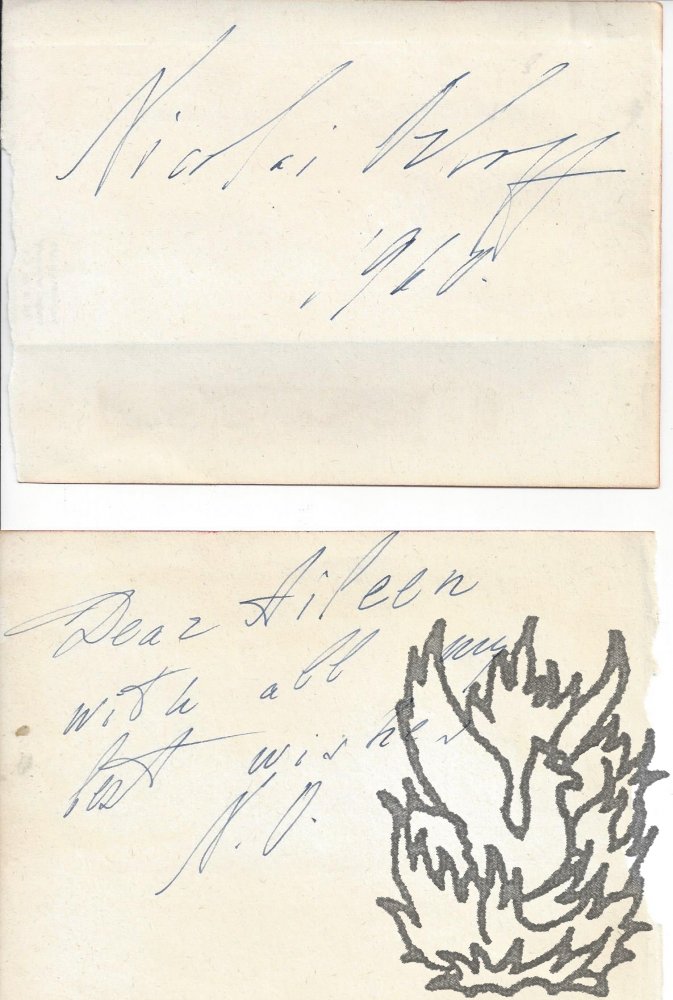 Nicolai Orloff
1960.
Dear Aileen
with all my
best wishes
N.O.